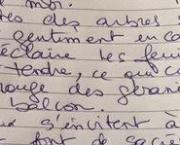 moi.
des arbres
gentiment en co
éclaire les feui
tendre, ce qui co
rouge des gérani
balcon.
s'invitent à
font de